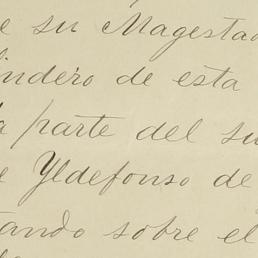 e su Magestad
lindero de esta
a parte del su
e Yldefonso de
tando sobre el